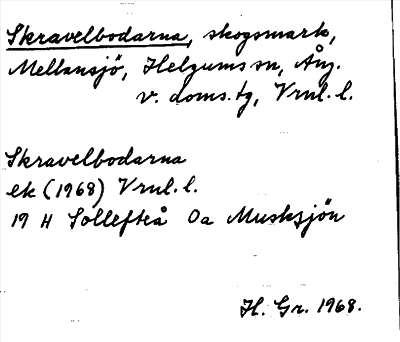 Skravelbodarna, skogsmark,
Mellansjö, Helgums sn, Ång.
v. doms. tg, Vrnl. l.
Skravelbodarna
ek (1968) Vrnl. l.
19 H Sollefteå 0a Musksjön
H. Gr. 1968.